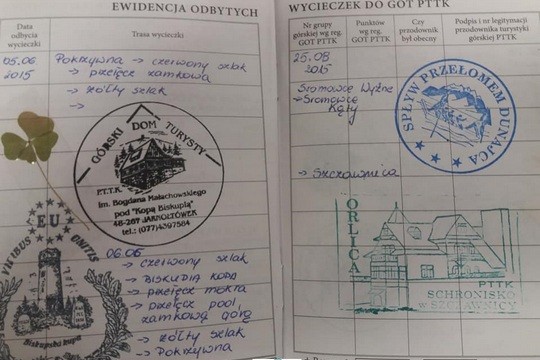 EWIDENCJA ODBYTYCH
Data odbycia wycieczki
Trasa wycieczki
05.06 2015
Pokrzywna → czerwony szlak
→ przełęcz zamkowa
→ żółty szlak
→
GÓRSKI DOM TURYSTY
P.T.T.K.
im. Bogdana Małachowskiego
pod "Kopą Biskupią"
48-267 JARNOŁTÓWEK
tel.: (077)4397584
EU
VIRIBUS UNITIS
Biskupská kupa
06.06
→ czerwony szlak
→ BISKUPIA KOPA
→ przełęcz mokra
→ przełęcz pod
zamkową górą
→ żółty szlak
→ Pokrzywna
WYCIECZEK DO GOT PTTK
Nr grupy górskiej wg reg. GOT PTTK
Punktów wg reg. GOT PTTK
Czy przodownik był obecny
Podpis i nr legitymacji przodownika turystyki górskiej PTTK
25.08
2015
Sromowce Wyżne
→ Sromowce
Kąty
SPŁYW PRZEŁOMEM DUNAJCA
→ Szczawnica
ORLICA
PTTK
SCHRONISKO
w SZCZAWNICY